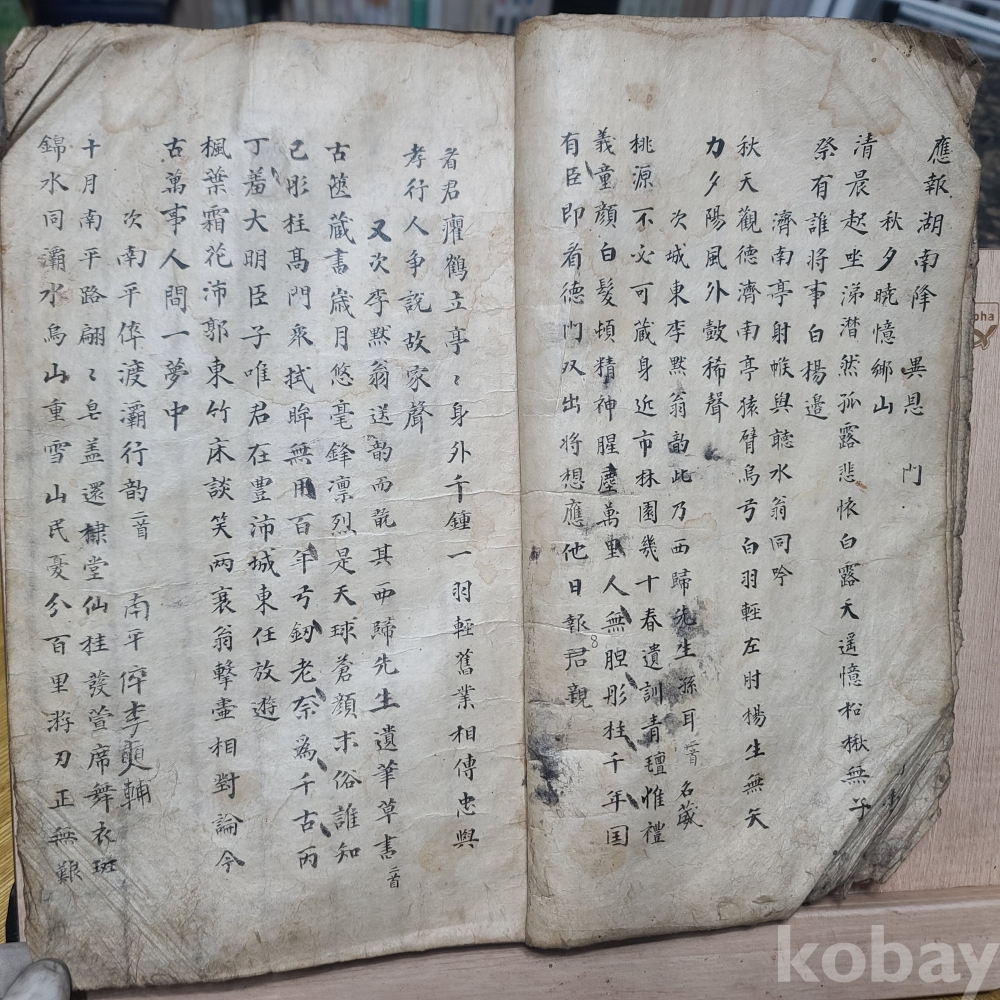 應報湖南降 異恩 門
秋夕曉憶鄉山
清晨起坐涕潜然孤露悲懷白露天遥憶松楸無子
祭有誰將事白楊邉
濟南亭射帿與聽水翁同吟
秋天觀德濟南亭猿臂烏弓白羽輕左肘楊生無矢
力夕陽風外皷稀聲
次城東李黙翁韵此乃西歸先生孫耳 二首 名葳
桃源不必可蔵身近市林園幾十春遺訓青氊惟禮
義童顔白髮頓精神腥塵萬里人無胆彤柱千年囯
有臣即看德門双出將想應他日報君親
8
看君癯鶴立亭〻身外千鍾一羽輕舊業相傳忠與
孝行人争説故家聲
又次李黙翁送韵而翫其西歸先生遺筆草書 二首
古篋蔵書歳月悠毫鋒凛烈是天球蒼顔末俗誰知
己彤柱髙門衆拭眸無用百年弓釼老奈爲千古丙
丁羞大明臣子唯君在豊沛城東任放遊
楓葉霜花沛郭東竹床談笑兩衰翁擊壷相對論今
古萬事人間一夢中
次南平倅渡灞行韵 二首 南平倅李 輔
十月南平路翩〻皂盖還棣堂仙桂發萱席舞衣斑
錦水同灞水烏山重雪山民憂分百里游刃正無艱
kobay